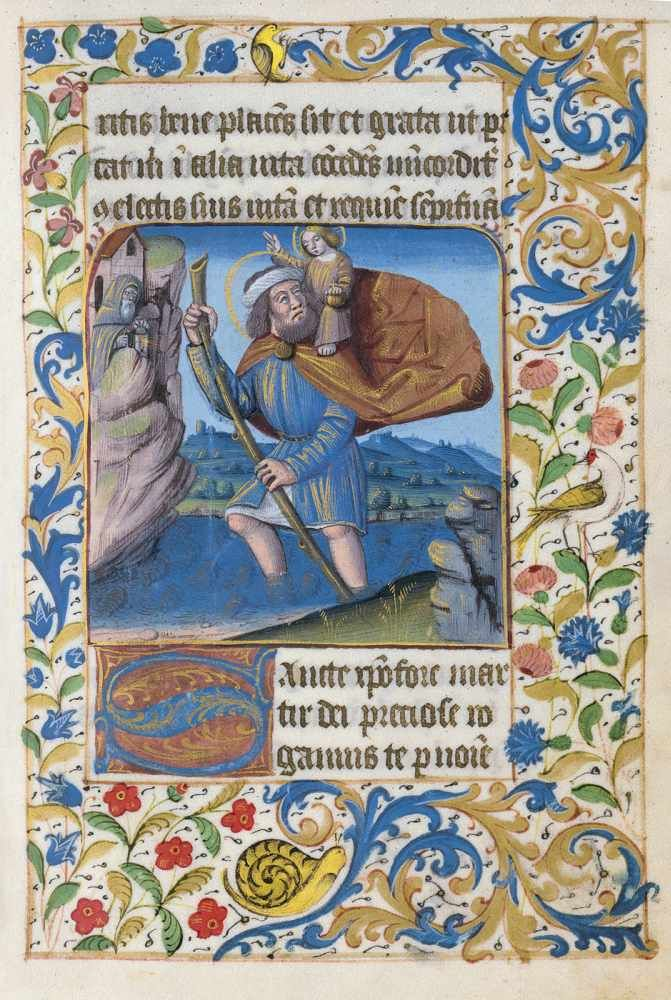 ritis bene placēs sit et grata ut pr
cat ihī ī alia uita cōcedēs mīcorditˀ
ꝯ electis suis uitā et requiē sēpiternā
Sancte xp̄ofore mar
tir dei preciose ro
gamus te p nom̄e